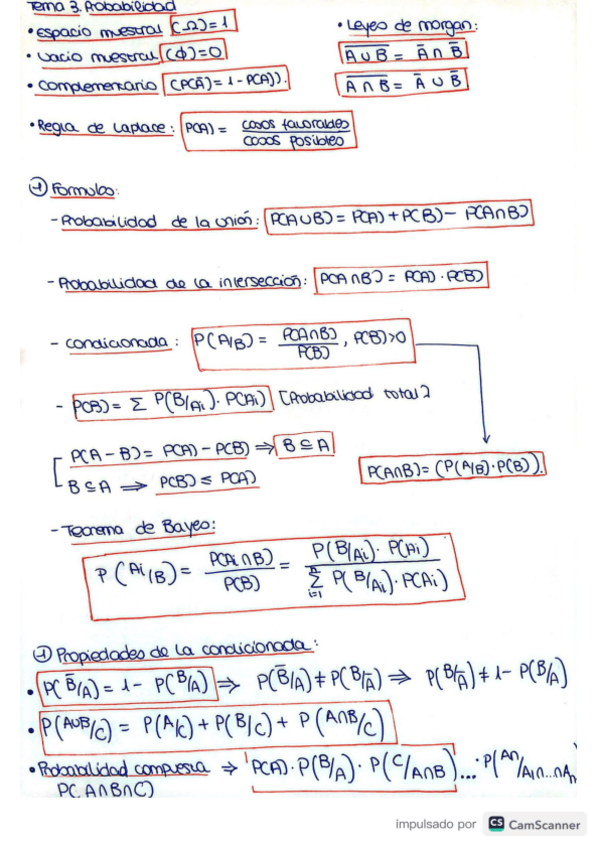 Tema 3. Probabilidad
• espacio muestral (Ω)=1
• vacio muestral (ϕ)=0
• Complementario (P(Ā)= 1-P(A)).
• Leyes de morgan:
\overline{A∪B} = Ā ∩ B̄
\overline{A∩B} = Ā ∪ B̄
• Regla de Laplace: P(A) = casos favorables / casos posibles
→ Formulas:
- Probabilidad de la unión: P(A∪B) = P(A)+P(B)- P(A∩B)
- Probabilidad de la intersección: P(A∩B) = P(A)·P(B)
- condicionada: P(A/B) = P(A∩B) / P(B), P(B)>0
- P(B)= Σ P(B/Ai)· P(Ai) [Probabilidad total]
P(A-B)= P(A)-P(B) ⇒ B⊆A
B⊆A ⇒ P(B) ≤ P(A)
P(A∩B)= (P(A/B)·P(B)).
- Teorema de Bayes:
P(Ai/B) = P(Ai∩B) / P(B) = P(B/Ai)· P(Ai) / Σ_{i=1}^{n} P(B/Ai)·P(Ai)
→ Propiedades de la condicionada:
• P(B̄/A) = 1- P(B/A) ⇒ P(B̄/A) ≠ P(B/Ā) ⇒ P(B/Ā) ≠ 1- P(B/A)
• P(A∪B/C) = P(A/C) + P(B/C) + P(A∩B/C)
• Probabilidad compuesta ⇒ P(A)·P(B/A)· P(C/A∩B)...·P(An/A1∩...∩An
P(A∩B∩C)
impulsado por CS CamScanner